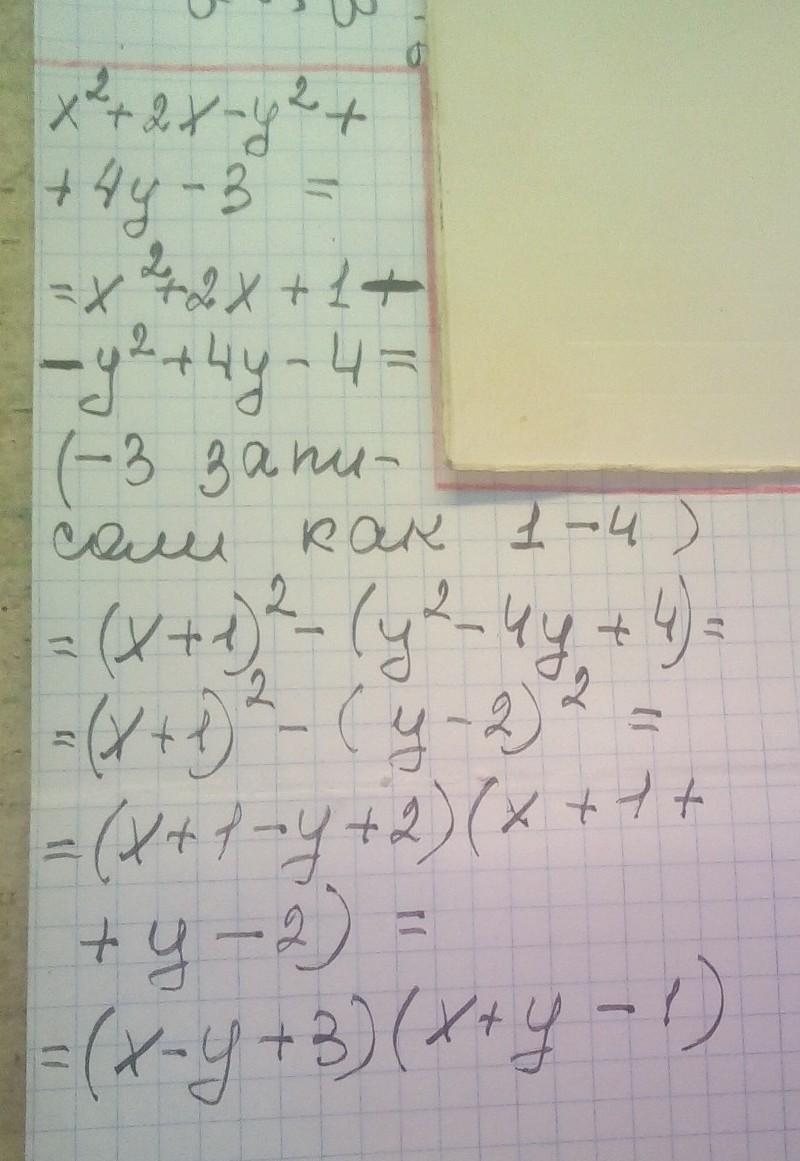 x²+2x-y²+
+4y-3 =
=x²+2x+1-
-y²+4y-4=
(-3 запи-
сали как 1-4)
=(x+1)²-(y²-4y+4)=
=(x+1)²-(y-2)²=
=(x+1-y+2)(x+1+
+y-2)=
=(x-y+3)(x+y-1)